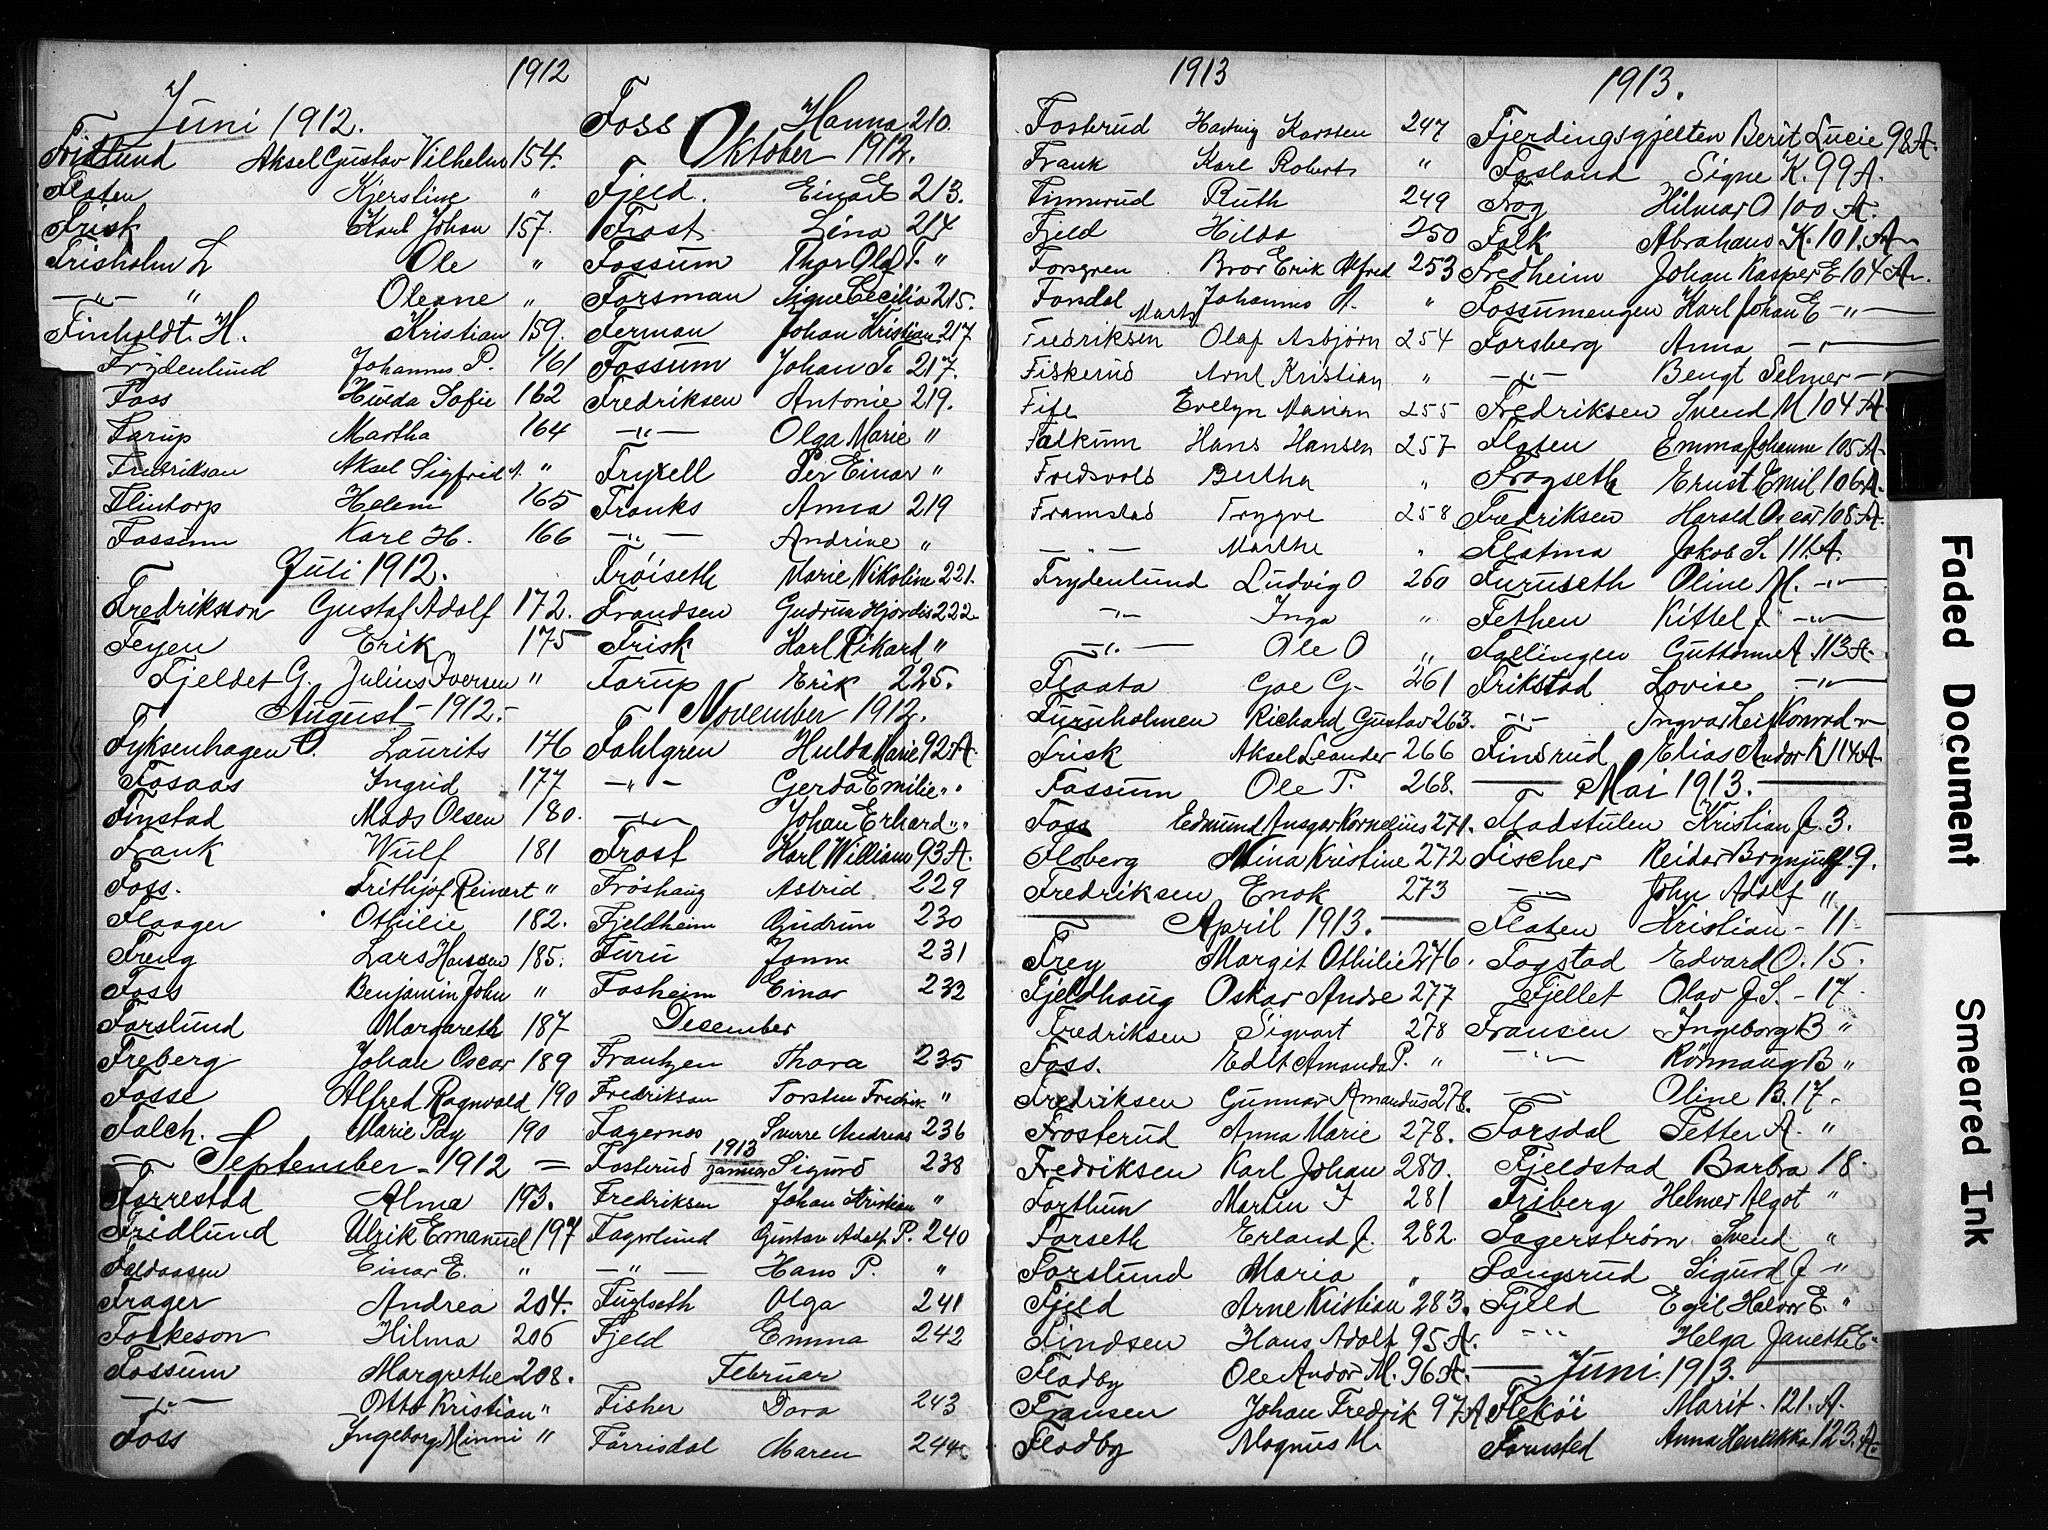 1912
Juni 1912.
Fridlund Aksel Gustav Vilhelm 154.
Flaten Kjerstine "
Frisk Karl Johan 157.
Frisholm L Ole "
—"— " Oleane "
Finholdt. H. Kristian 159.
Frydenlund Johannes P. 161
Foss Hulda Sofie 162
Farup Martha 164
Fredriksen Aksel Sigfrid A. "
Flintorp Helem 165
Fossum Karl H. 166
Juli 1912.
Fredriksson Gustaf Adolf 172.
Feyen Erik 175
Fjeldet G. Julius Iversen "
August - 1912.-
Fyksenhagen O. Laurits 176
Fosaas Ingrid 177
Finstad Mads Olsen 180.
Frank Wulf 181
Foss. Frithjof Reinert "
Flaager Othilie 182.
Freng Lars Hansen 185.
Foss Benjamin John "
Forslund Margareth 187
Freberg Johan Oscar 189
Fosse Alfred Ragnvald 190
Falch. Marie Pay 190
September - 1912 =
Forrestad Alma 193.
Fridlund Ulrik Emanuel 197
Faldaasen Einar E. "
Frager Andrea 204.
Folkeson Hilma 206
Fossum Margrethe 208.
—"— Otto Kristian "
Foss Ingeborg Minni "
Foss Hanna 210.
Oktober 1912.
Fjeld. Einar E 213.
Frost Lina 214
Fossum Thor Olaf T. "
Forsman Signe Cecilia 215.
Ferman Johan Kristian 217
Fossum Johan T. 217.
Fredriksen Antonie 219.
—"— Olga Marie "
Fryxell Per Einar "
Franks Anna 219
—"— Andrine "
Fröiseth Marie Nikoline 221.
Frandsen Gudrun Hjördis 222
Frisk Karl Rikard "
Farup Erik 225.
November 1912.
Fahlgren Hulda Marie 92 A.
—"— Gerda Emilie "
—"— Johan Erhard "
Frost Karl William 93 A.
Fröshaug Astrid 229
Fjeldheim Gudrun 230
Furu Jonna 231
Fosheim Einar 232
Desember
Frantzen Thora 235
Fredriksen Torsten Fredrik "
Fagernes Sverre Andreas 236
1913
Fosterud Januar Sigurd 238
Fredriksen Johan Kristian "
Fagerlund Gustav Adolf P. 240
—"— Hans P. "
Fuglseth Olga 241
Fjeld Emma 242
Februar
Fisher Dora 243
Förrisdal Maren 244
1913
Fosterud Hartvig Karsten 247
Frank Karl Roberts "
Finnerud Ruth 249
Fjeld Hilda 250
Forsgren Bror Erik Alfred 253
Fondal Johannes A. "
Marts
Fredriksen Olaf Asbjørn 254
Fiskerud Arnt Kristian "
Fife Evelyn Marian 255
Falkum Hans Hansen 257
Fredsvold Bertha "
Framstad Trygve 258
—"— Marthe "
Frydenlund Ludvig O 260
—"— Inga "
—"— Ole O "
Flaata Goe G- 261
Furuholmen Richard Gustav 263.
Frisk Aksel Leander 266
Fossum Ole P. 268.
Foss Edmund Ansgar Kornelius 271.
Floberg Nina Kristine 272
Fredriksen Enok 273
April 1913.
Frey Margit Othilie 276.
Fjeldhaug Oskar Andre 277
Fredriksen Sigvart 278
Foss. Edit Amanda P. "
Fredriksen Gunnar Amandus 278.
Frosterud Anna Marie 278.
Fredriksen Karl Johan 280.
Forthun Martin J 281
Forseth Erland J. 282.
Forslund Maria "
Fjeld Arne Kristian 283.
Findsen Hans Adolf 95 A.
Flodby Ole Andor M. 96 A.
Fransen Johan Fredrik 97 A
Flodby Magnus M.
1913.
Fjerdingsgjelten Berit Lucie 98 A.
Fosland Signe K. 99 A.
Frog Hilmar O 100 A.
Falk Abrahams K. 101. A
Fredheim Johan Kasper E 104 A.
Fossumengen Karl Johan E —"—
Forsberg Anna —"—
—"— Bengt Selmer —"—
Fredriksen Svend M 104 A
Flaten Emma Johanne 105 A
Frogseth Ernst Emil 106 A.
Fredriksen Harald Oscar 108 A.
Flatma Jakob S. 111. A.
Furuseth Oline M. —"—
Fethen Kittel J. —"—
Fællingen Guttorm A 113 A.
Frikstad Lovise —"—
—"— Ingvar Leif Konrad —"—
Finsrud Elias Andor K 114 A
Mai 1913.
Fladstulen Kristian J. 3.
Fischer Reidar Brynjulf 9.
—"— John Adolf "
Flaten Kristian - 11 -
Fogstad Edvard O. 15.
Fjellet Olav J. S. - 17 -
Fransen Ingeborg B "
—"— Rönnaug B "
—"— Oline B. 17.
Forsdal Petter A. "
Fjeldstad Barbra 18.
Friberg Helmer Algot "
Fagerström Svend "
Fangsrud Sigurd J "
Fjeld Egil Halvor E. "
—"— Helga Janette E "
Juni 1913.
Flekøi Marit - 121. A.
Fornsted Anna Henrikka 123. A
Faded Document
Smeared Ink